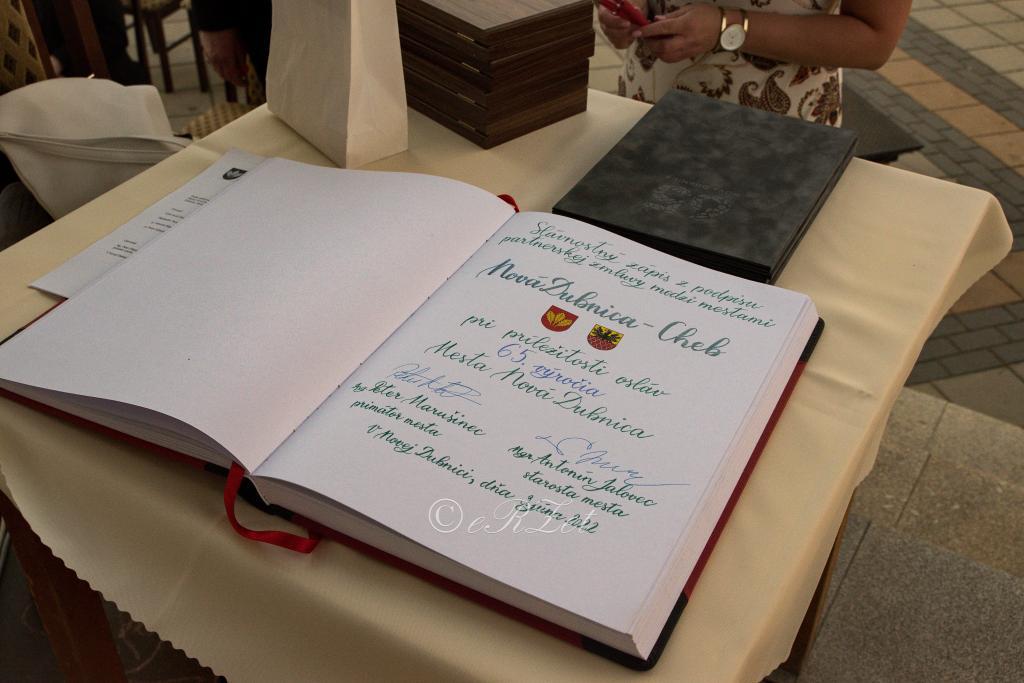 Slávnostný zápis z podpisu
partnerskej zmluvy medzi mestami
Nová Dubnica - Cheb
pri príležitosti osláv
65. výročia
Mesta Nová Dubnica
Ing. Peter Marušinec
primátor mesta
Mgr. Antonín Jalovec
starosta mesta
v Novej Dubnici, dňa
júna 2022
© eRZet